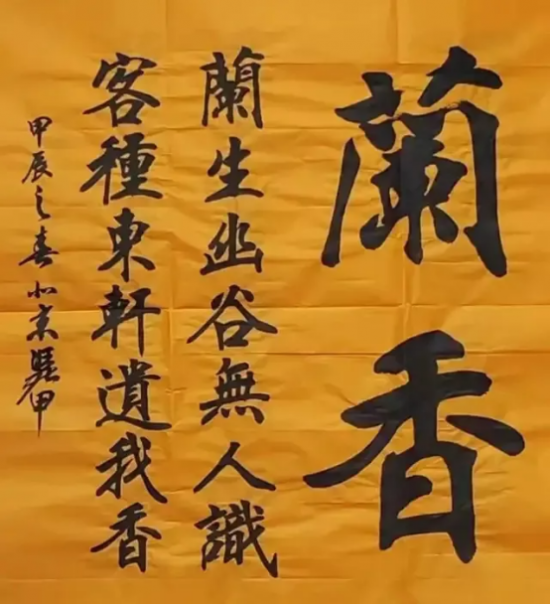 蘭香
蘭生幽谷無人識
客種東軒遺我香
甲辰之春